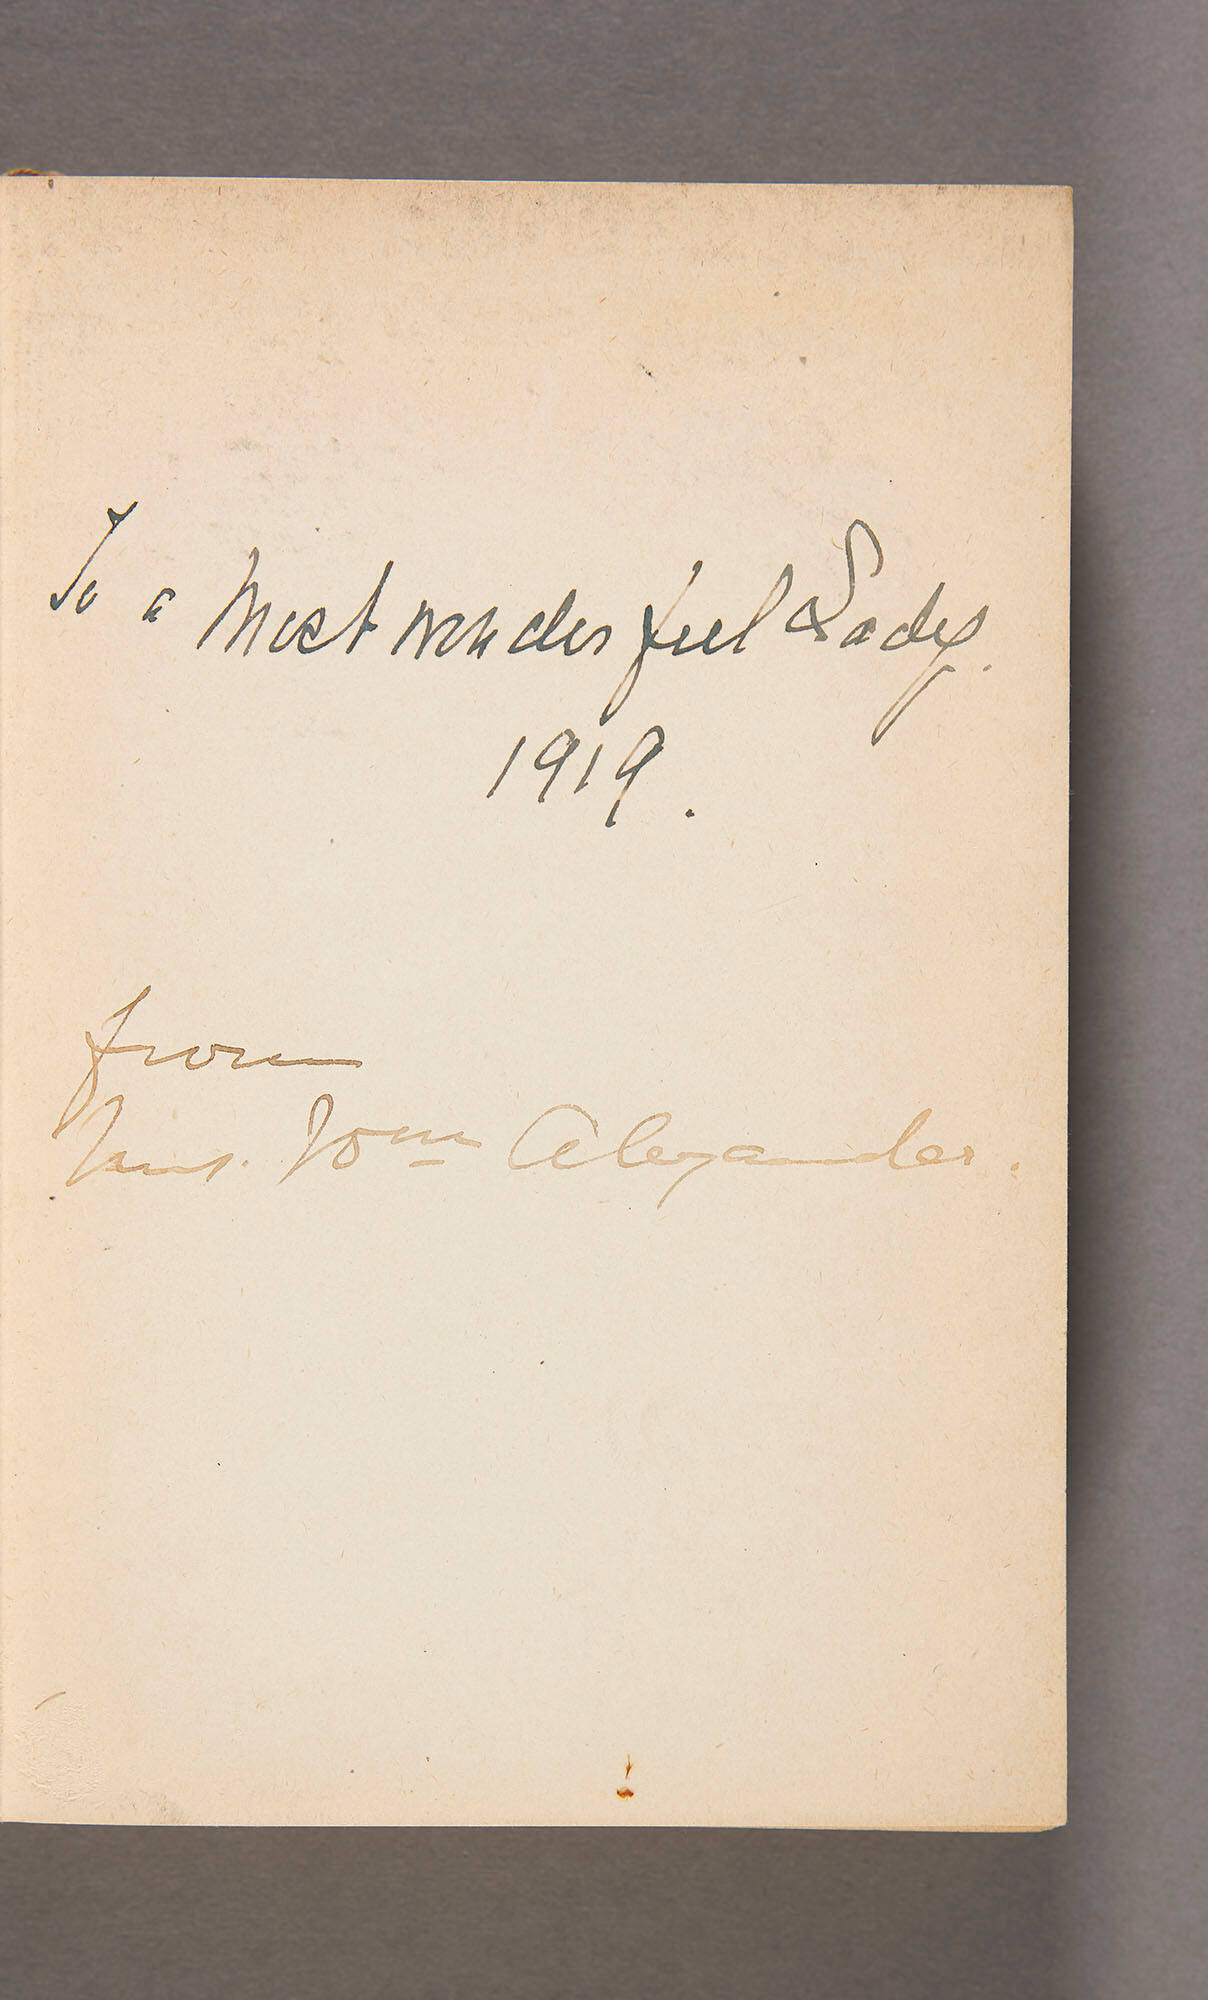 To a Most wonderful Lady.
1919.
from
Mrs. Wm Alexander.